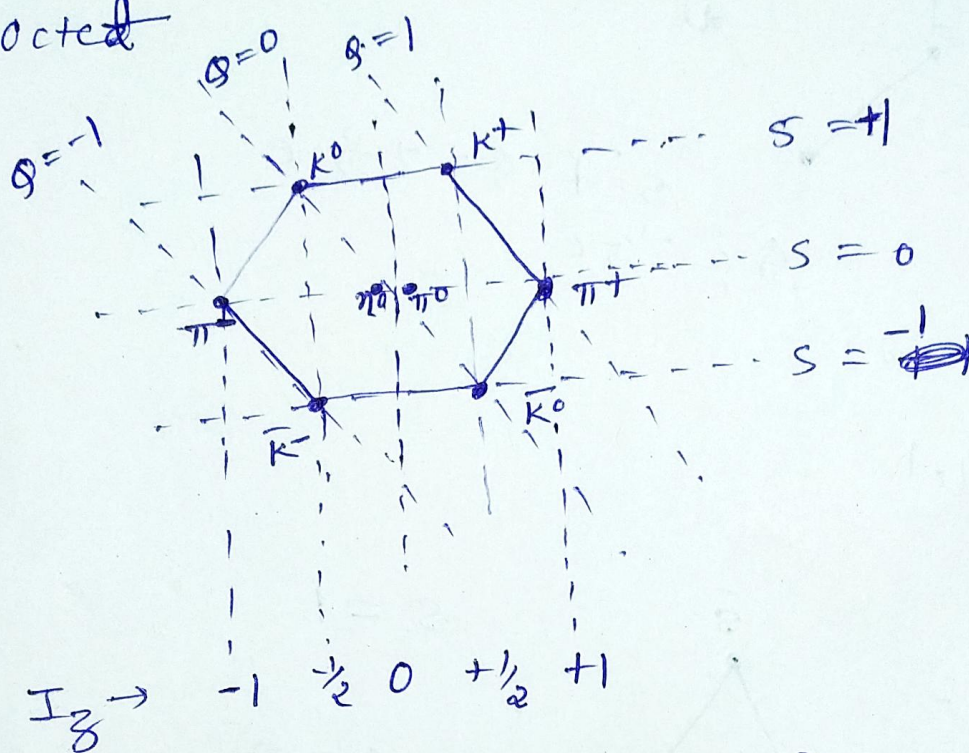 Octed
Q=0 Q=1
Q=-1
K⁰ K⁺ S=+1
π⁻ η⁰ π⁰ π⁺ S=0
K̅⁻ K̅⁰ S=-1
I₃→ -1 -1/2 0 +1/2 +1